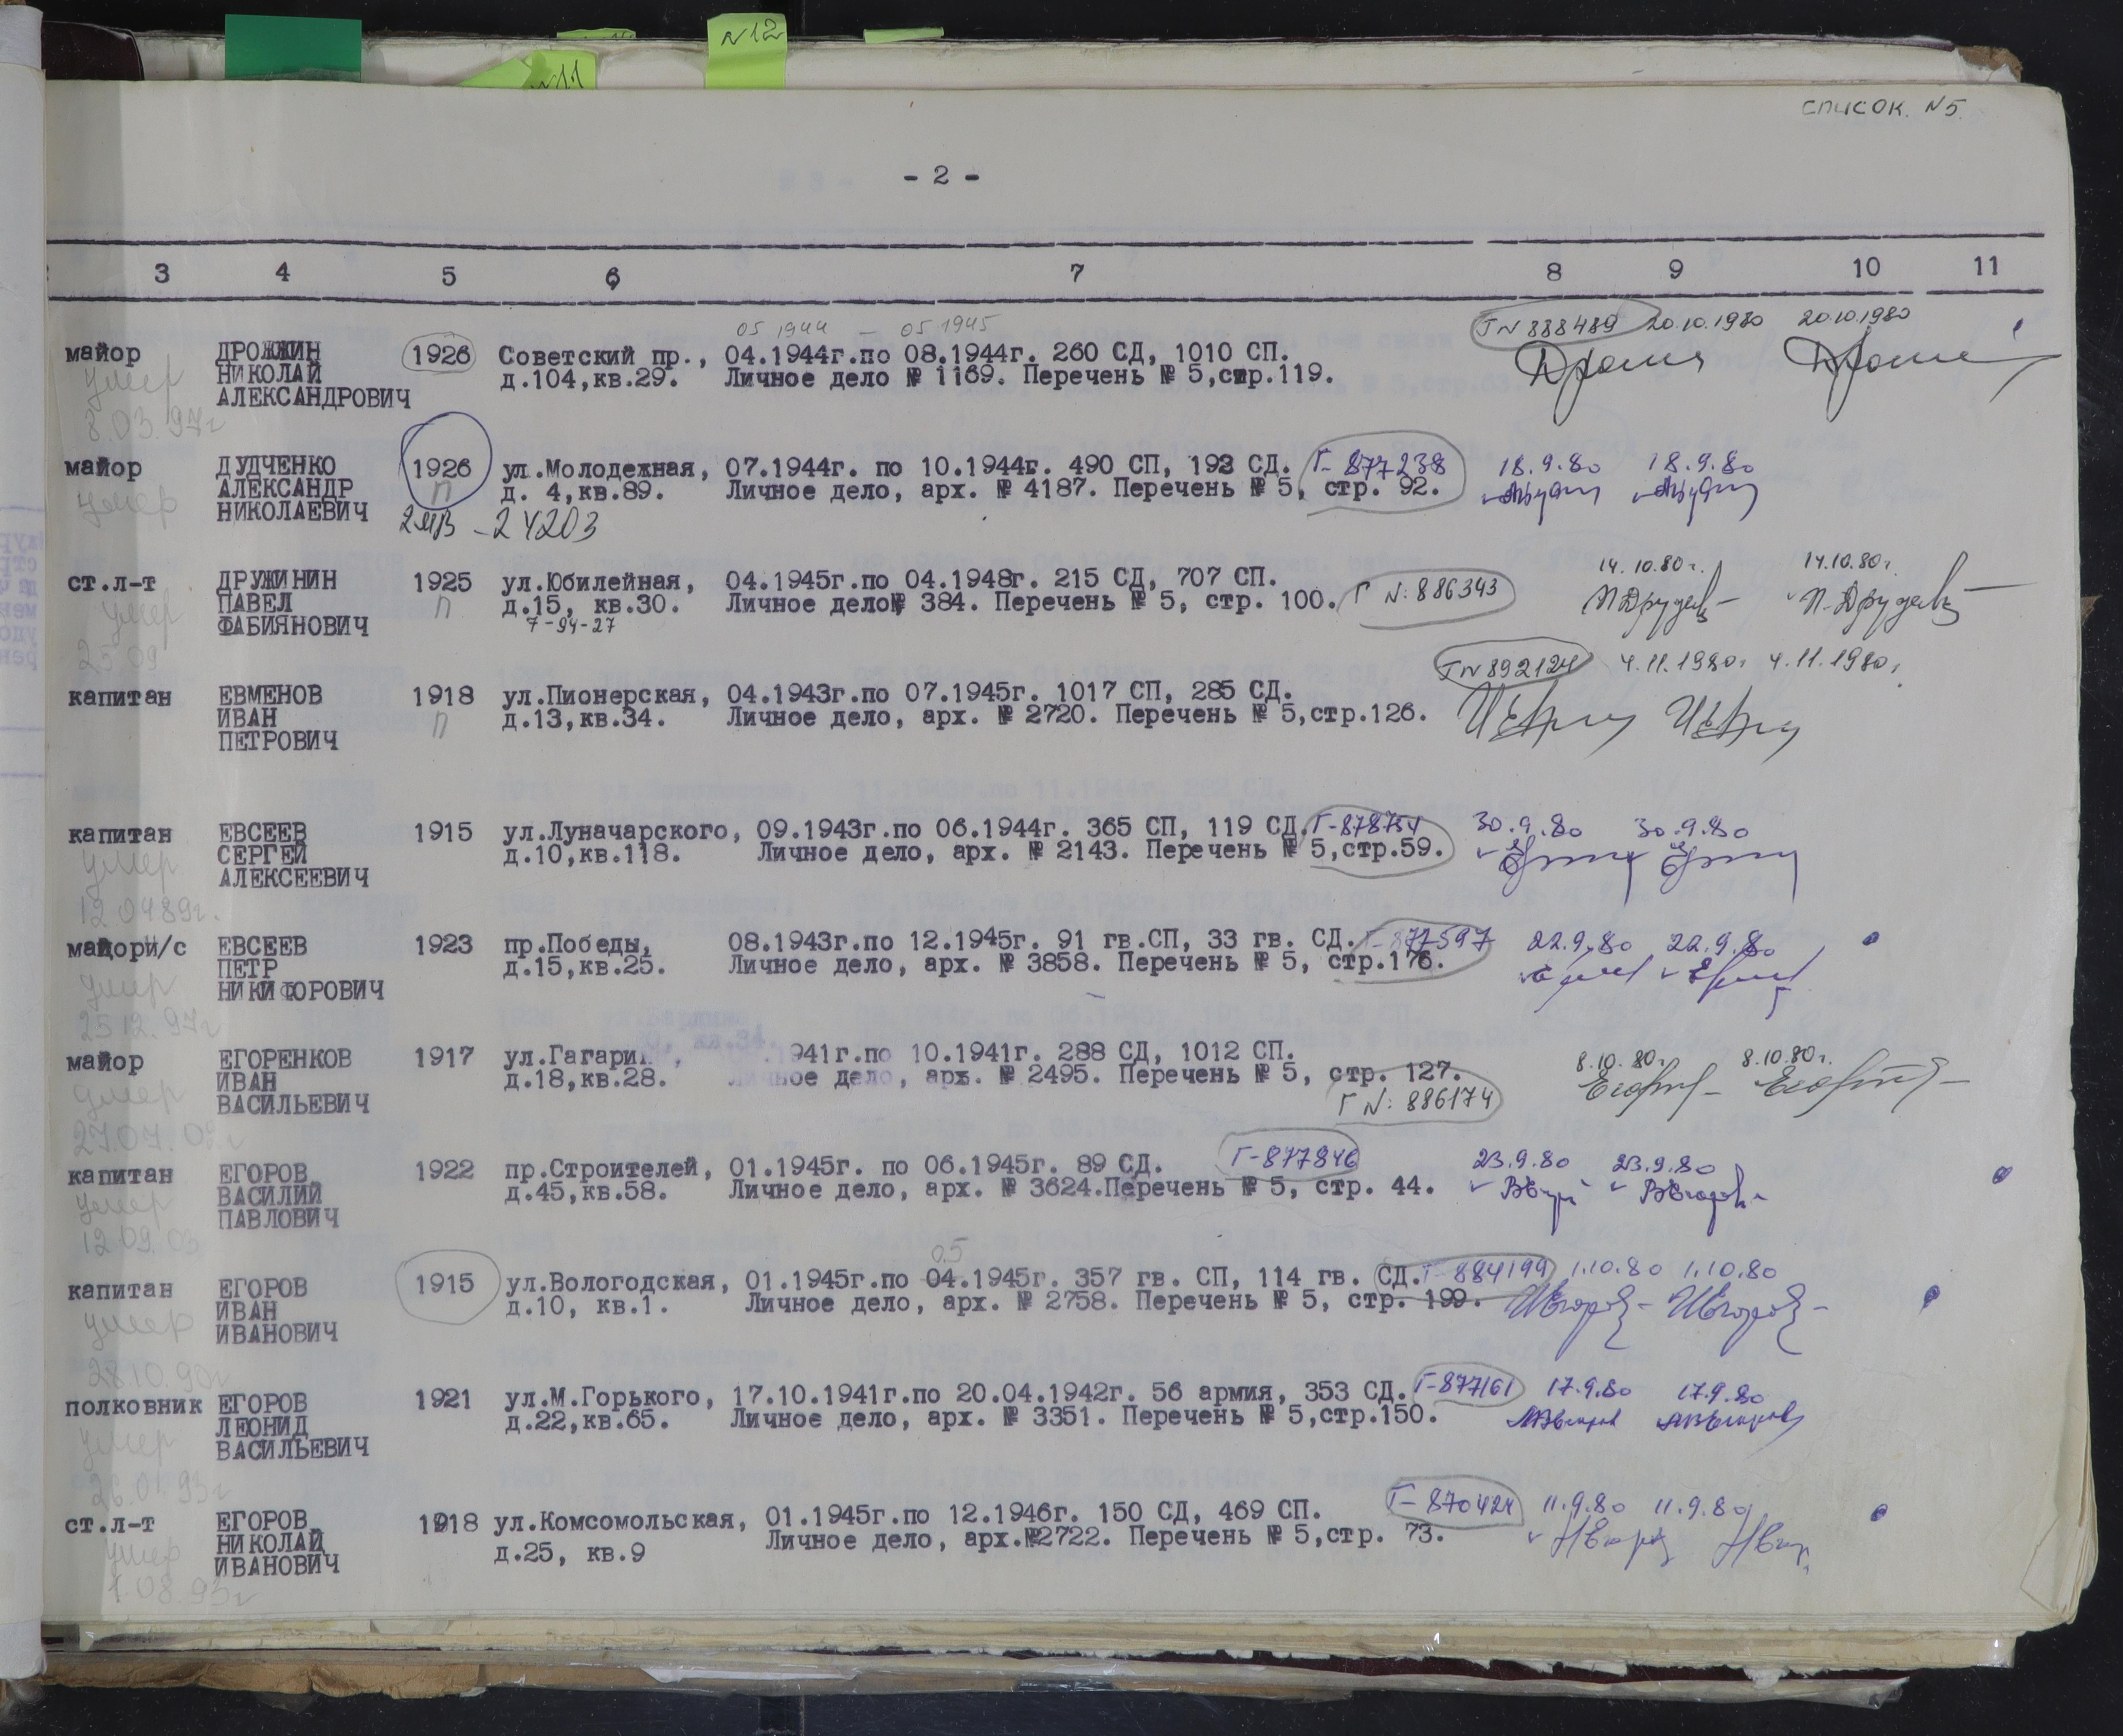 N12
N11
СПИСОК. N5.
- 2 -
3 4 5 6 7 8 9 10 11
05 1944 — 05 1945
Г N 888489 20.10.1980 20.10.1980
майор ДРОЖЖИН 1926 Советский пр., 04.1944г.по 08.1944г. 260 СД, 1010 СП.
умер НИКОЛАЙ д.104,кв.29. Личное дело № 1169. Перечень № 5,стр.119.
АЛЕКСАНДРОВИЧ
8.03.97г
майор ДУДЧЕНКО 1926 ул.Молодежная, 07.1944г. по 10.1944г. 490 СП, 192 СД. Г-877238 18.9.80 18.9.80
умер АЛЕКСАНДР П д. 4,кв.89. Личное дело, арх. № 4187. Перечень № 5, стр. 92.
НИКОЛАЕВИЧ
- 24203
14.10.80г. 14.10.80г.
ст.л-т ДРУЖИНИН 1925 ул.Юбилейная, 04.1945г.по 04.1948г. 215 СД, 707 СП.
умер ПАВЕЛ П д.15, кв.30. Личное дело№ 384. Перечень № 5, стр. 100. Г N: 886343
ФАБИЯНОВИЧ 7-94-27
Г N 892124 4.11.1980г 4.11.1980г.
капитан ЕВМЕНОВ 1918 ул.Пионерская, 04.1943г.по 07.1945г. 1017 СП, 285 СД.
ИВАН П д.13,кв.34. Личное дело, арх. № 2720. Перечень № 5,стр.126.
ПЕТРОВИЧ
капитан ЕВСЕЕВ 1915 ул.Луначарского, 09.1943г.по 06.1944г. 365 СП, 119 СД. Г-878754 30.9.80 30.9.80
умер СЕРГЕЙ д.10,кв.118. Личное дело, арх. № 2143. Перечень № 5,стр.59.
АЛЕКСЕЕВИЧ
12.04.89г.
майори/с ЕВСЕЕВ 1923 пр.Победы, 08.1943г.по 12.1945г. 91 гв.СП, 33 гв. СД. Г-877597 22.9.80 22.9.80
умер ПЕТР д.15,кв.25. Личное дело, арх. № 3858. Перечень № 5, стр.176.
НИКИФОРОВИЧ
25.12.97г
майор ЕГОРЕНКОВ 1917 ул.Гагарин , 941г.по 10.1941г. 288 СД, 1012 СП. 8.10.80г. 8.10.80г.
умер ИВАН д.18,кв.28. Личное дело, арх. № 2495. Перечень № 5, стр. 127.
ВАСИЛЬЕВИЧ Г N: 886174
капитан ЕГОРОВ 1922 пр.Строителей, 01.1945г. по 06.1945г. 89 СД. Г-877846 23.9.80 23.9.80
умер ВАСИЛИЙ д.45,кв.58. Личное дело, арх. № 3624.Перечень № 5, стр. 44.
ПАВЛОВИЧ
12.09.03
05
капитан ЕГОРОВ 1915 ул.Вологодская, 01.1945г.по 04.1945г. 357 гв. СП, 114 гв. СД. Г-884199 1.10.80 1.10.80
умер ИВАН д.10, кв.1. Личное дело, арх. № 2758. Перечень № 5, стр. 199. ИЕгоров ИЕгоров
ИВАНОВИЧ
28.10.90г
полковник ЕГОРОВ 1921 ул.М.Горького, 17.10.1941г.по 20.04.1942г. 56 армия, 353 СД. Г-877161 17.9.80 17.9.80
умер ЛЕОНИД д.22,кв.65. Личное дело, арх. № 3351. Перечень № 5,стр.150.
ВАСИЛЬЕВИЧ
26.01.93г
ст.л-т ЕГОРОВ 1918 ул.Комсомольская, 01.1945г.по 12.1946г. 150 СД, 469 СП. Г-870424 11.9.80 11.9.80
умер НИКОЛАЙ д.25, кв.9 Личное дело, арх.№2722. Перечень № 5,стр. 73.
ИВАНОВИЧ
1.08.93г